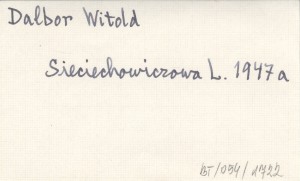 Dalbor Witold
Sieciechowiczowa L. 1947a
BT/094/1722